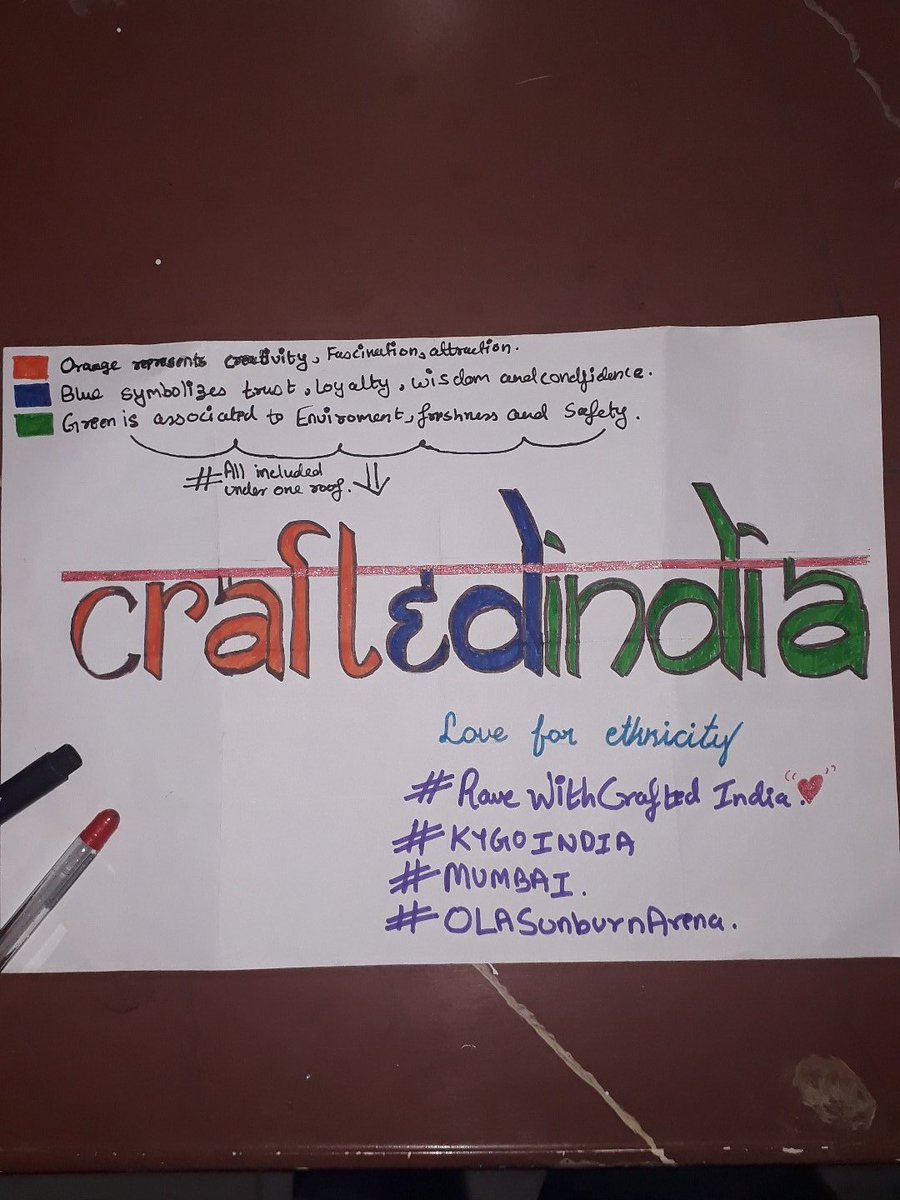 Orange represents creativity, Fascination, attraction.
Blue symbolizes trust, loyalty, wisdom and condfidence.
Green is associated to Enviroment, freshness and Safety.
# All included
under one roof.
craftedindia
Love for ethnicity
# Rave WithCrafted India. "❤"
# KYGOINDIA
# MUMBAI.
# OLASunburnArena.